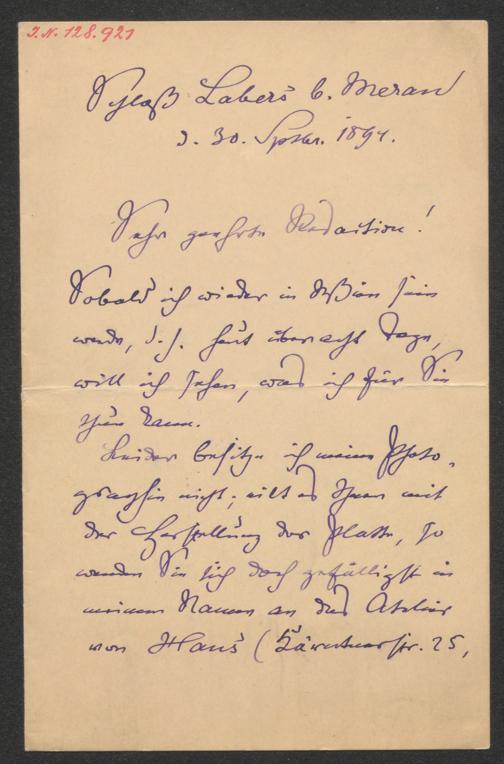 J.N. 128.921
Schloß Labers b. Meran
d. 30. Septbr. 1894.
Sehr geehrte Redaction!
Sobald ich wieder in Wien sein
werde, d. h. heut über acht Tage,
will ich sehen, was ich für Sie
thun kann.
Leider besitze ich meine Photo-
graphie nicht; eilt es Ihnen mit
der Herstellung der Platte, so
wenden Sie sich doch gefälligst in
meinem Namen an das Atelier
von Hans (Kärnthnerstr. 25,